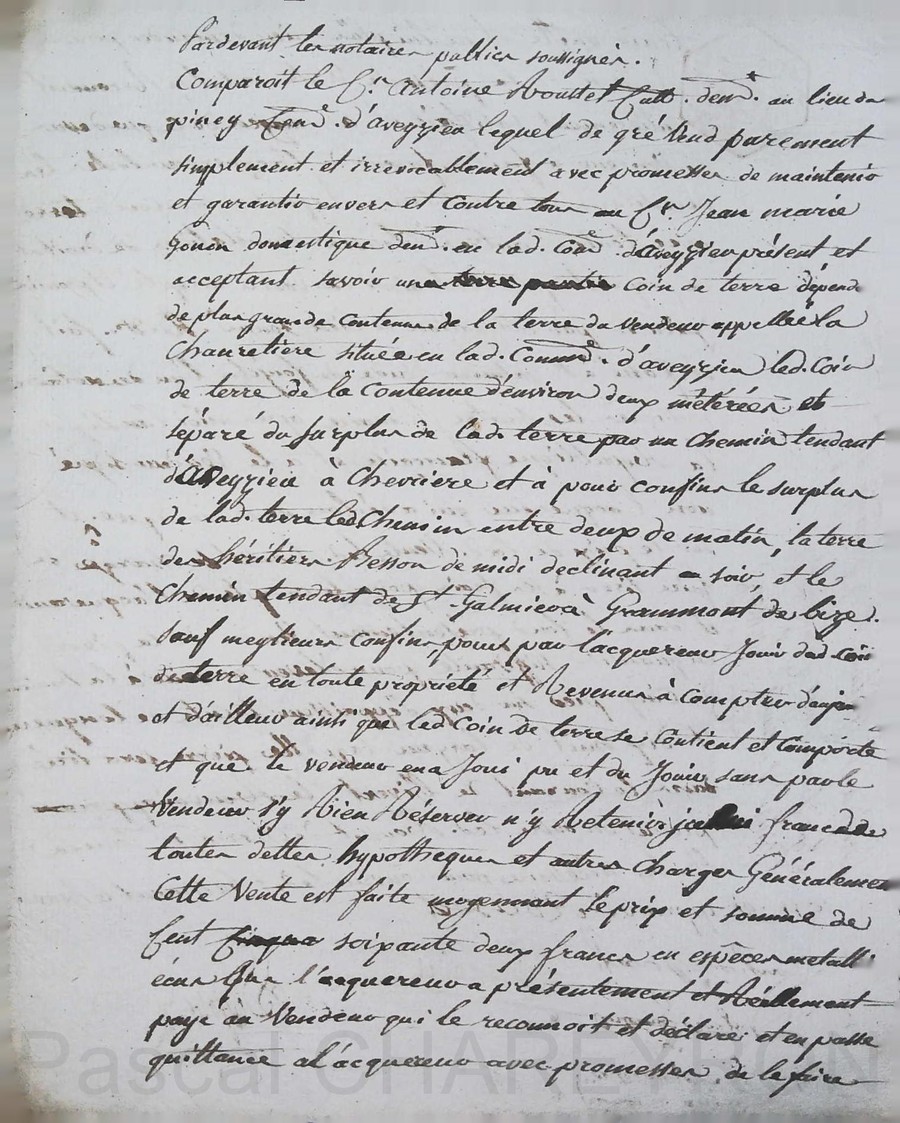 Pardevant les notaires publics soussignés.
Comparoit le Cn. Antoine Rousset Cult. demt. au lieu du
piney Come. d'aveyzieu lequel de gré Vend purement
simplement et irrevocablement avec promesses de maintenir
et garantir envers et Contre tous au Cn. Jean marie
gonon domestique demt. en lad. Come. d'aveyzieu présent et
acceptant savoir un coin de terre dépend.
de plus grande contenue de la terre du vendeur appellée la
située en lad. Comme. d'aveyzieu led. Coin
de terre de la Contenue d'environ deux méterées et
séparé du surplus de lad. terre par un Chemin tendant
d'aveyzieu à Chevriere et à pour confins le surplus
de lad. terre led Chemin entre deux de matin, la terre
des héritiers Besson de midi declinant a soir, et le
Chemin tendant de St. Galmier à Grammont de bize.
sauf meylieurs confins, pour par l'acquereur Jouir dud. coin
de terre en toute propriété et Revenus à Compter d'aujou
et d'ailleur ainsi que led Coin de terre se Contient et Comporte
et que le vendeur en a Joui pu et du Jouir sans par le
Vendeur s'y Rien Réserver n'y Retenir franc de
toutes dettes hypotheques et autres Charges Généralement
Cette Vente est faite moyennant le prix et somme de
Cent soixante deux francs en espèces metall
écus que l'acquereur a présentement et Réellement
payé au Vendeur qui le reconnoit et déclare et en passe
quittance a l'acquereur avec promesses de le faire
Pascal CHAPEYRON